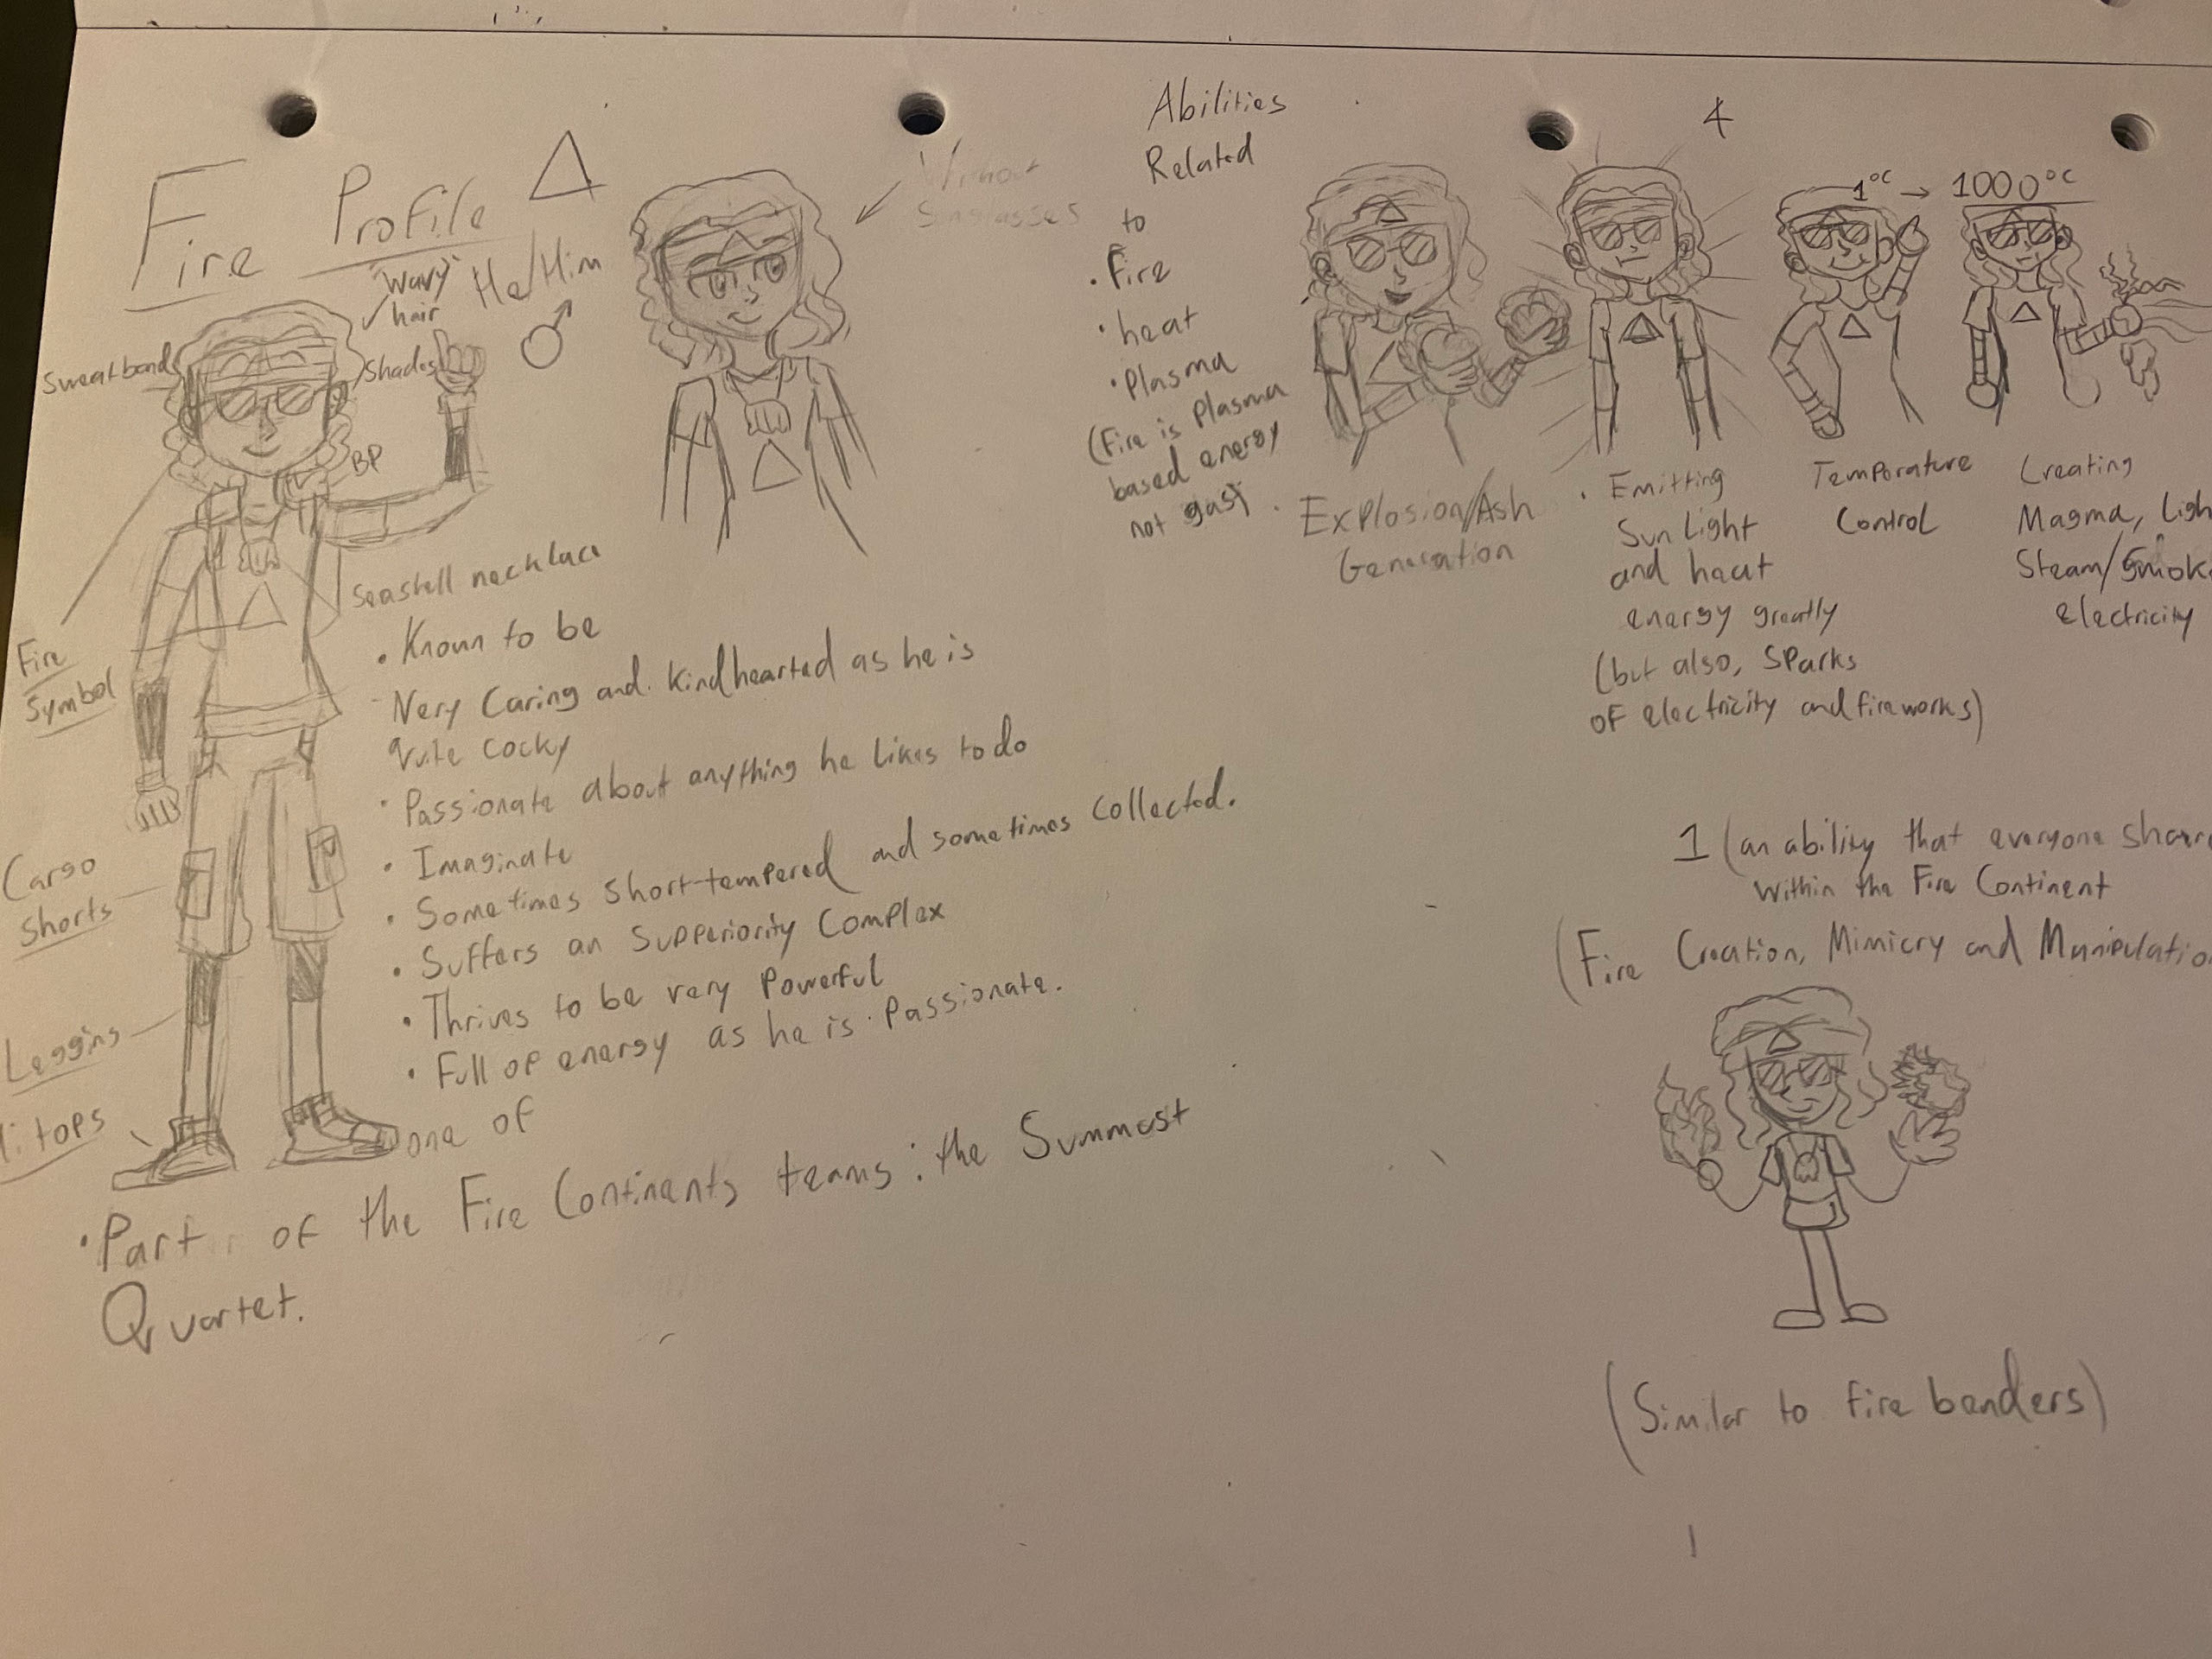 Fire Profile
He/Him
Wavy
hair
Sweatband
Shades
BP
Seashell necklace
Fire
Symbol
Cargo
Shorts
Leggins
tops
Without
Sunglasses
• Known to be
Very Caring and kindhearted as he is
quite cocky
• Passionate about anything he likes to do
• Imaginate
• Sometimes short-tempered and sometimes collected.
• Suffers an Supperiority Complex
• Thrives to be very Powerful
• Full of energy as he is Passionate.
one of
• Part of the Fire Continents teams: the Summast
Quartet.
Abilities
Related
to
• Fire
• heat
• Plasma
(Fire is Plasma
based energy
not gas)
4
1°C → 1000°C
• Explosion/Ash
Generation
• Emitting
Sun Light
and heat
energy greatly
(but also, Sparks
of electricity and fireworks)
Temporature
Control
Creating
Magma, Ligh
Steam/Smok
electricity
1 (an ability that everyone share
within the Fire Continent
(Fire Creation, Mimicry and Manipulatio
(Similar to fire benders)